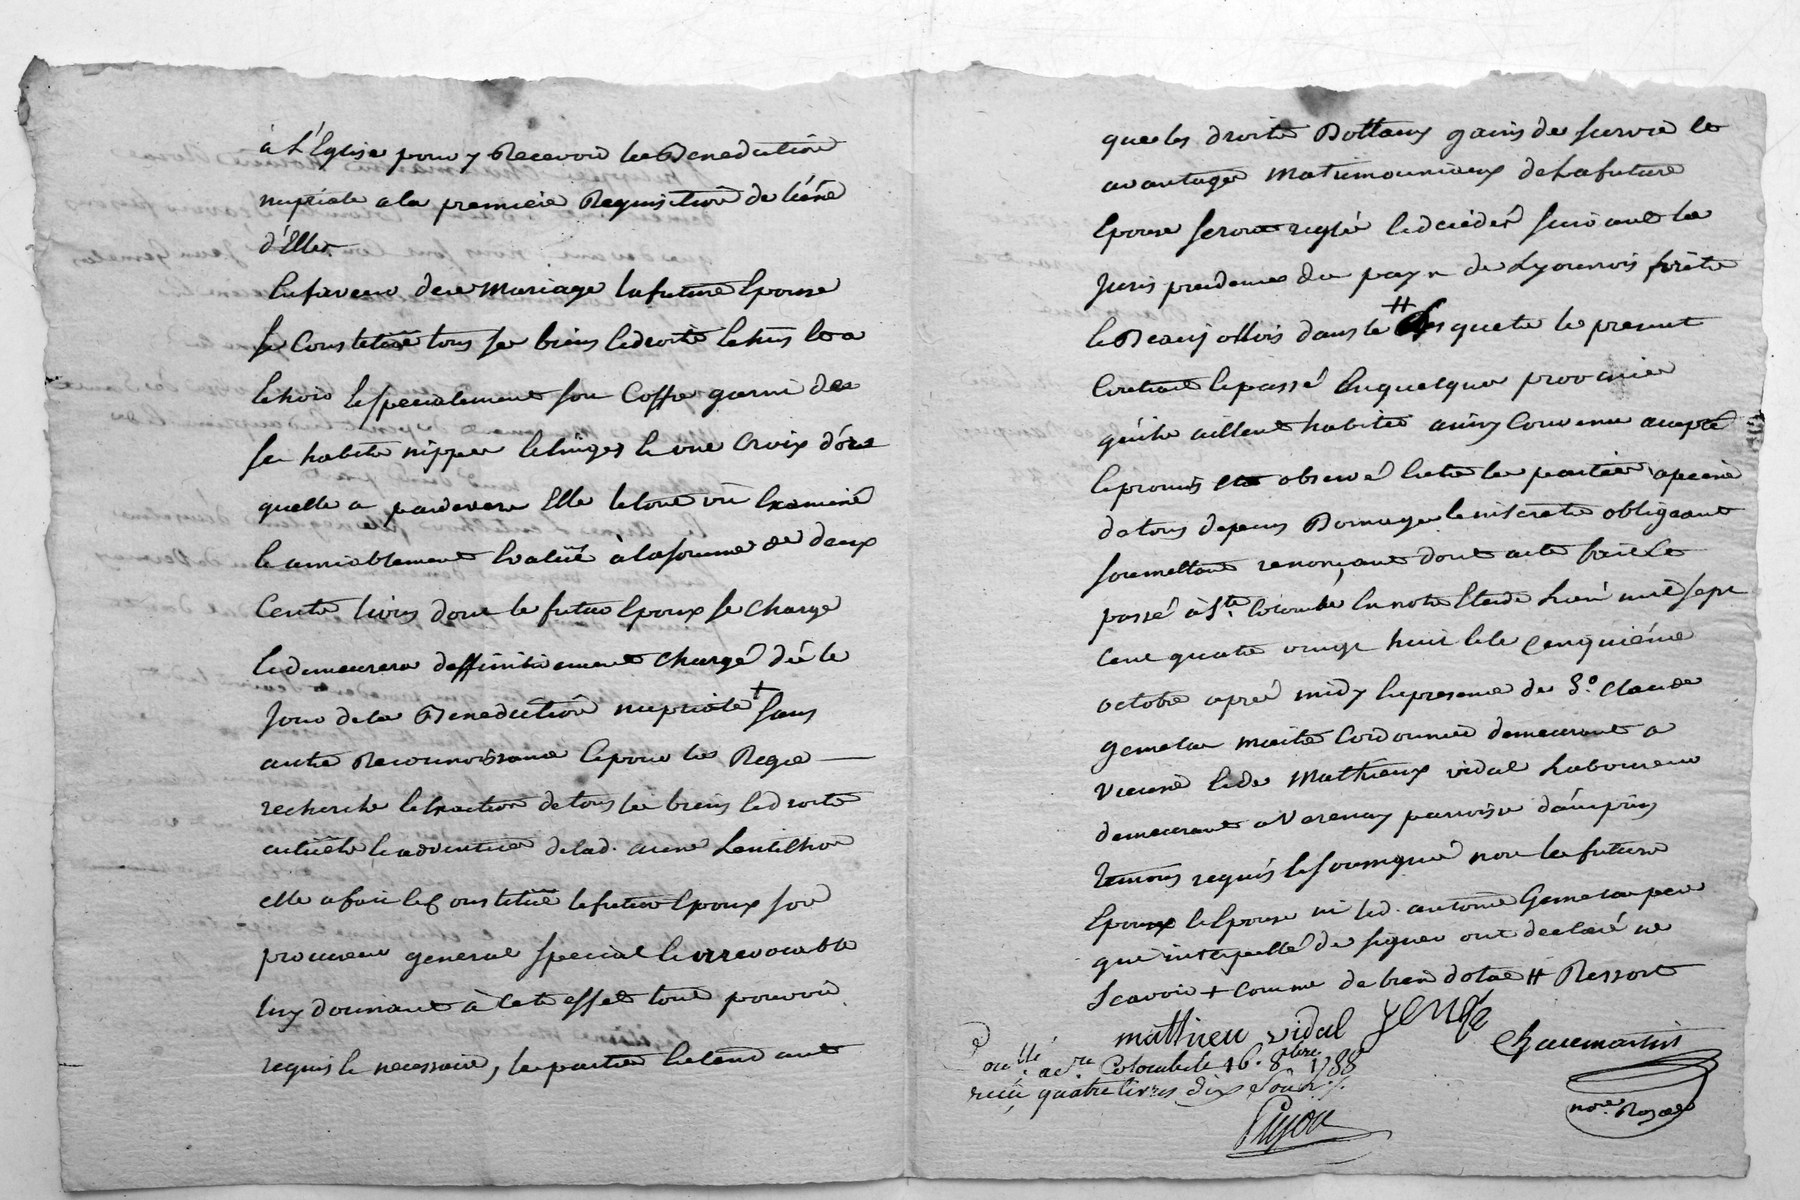 à L'Eglise pour y Recevoir la Benediction
nuptiale a la premiere Requisition de l'une
d'Elles
En faveur de ce Mariage la future Epouse
se Constitüe tous ses biens et droits echus et a
echoir et specialement son Coffre garni de
ses habits nippes et linges et une Croix d'or
quelle a pardevers Elle le tout vû Examiné
et amiablement Evalüé à la somme de deux
Cents livres dont le futur Epoux se charge
et demeurera deffinitivement chargé dès le
Jour de la Benediction nuptiale + sans
autre Reconnoissance et pour la Regie
recherche et Exaction de tous les biens et droits
actuels et adventice de lad. anne Lentilhon
elle a fait et Constitüé le futur Epoux son
procureur general special et irrevocable
luy donnant à cet effet tout pouvoir
requis et necessaire, les parties Entendant
que les droits Dottaux gains de survie et
avantages Matrimoniaux de La future
Epouse seront reglés et decidés suivant la
Jurisprudence du pays de Lyonnois forêts
et Beaujollois dans le # quel le present
Contrat est passé En quelque province
qu'ils aillent habiter ainsy Convenu accepté
et promis observé Entre les parties a peine
de tous depens Dommages et interets obligeant
soumettant renonçant dont acte fait et
passé à Ste. Colombe En notre Etude L'an mil sept
cent quatre vingt huit et le cinquième
octobre aprés midy En presence de Sr. Claude
Gemelas maitre Cordonnier demeurant a
vienne et de Matthieux vidal Laboureur
demeurant a Verenay paroisse d'ampuis
temoins requis et soussignés non les futurs
Epoux et Epouse ni led. antoine Gemelas pere
qui interpellés de signer ont declaré ne
scavoir + comme de bien dotal # Ressort
mathieu vidal
Chaumartin
nore. Royal
Coллé. a Ste Colombe le 16. 8bre 1788
reçu quatre livres dix sous
Pujou